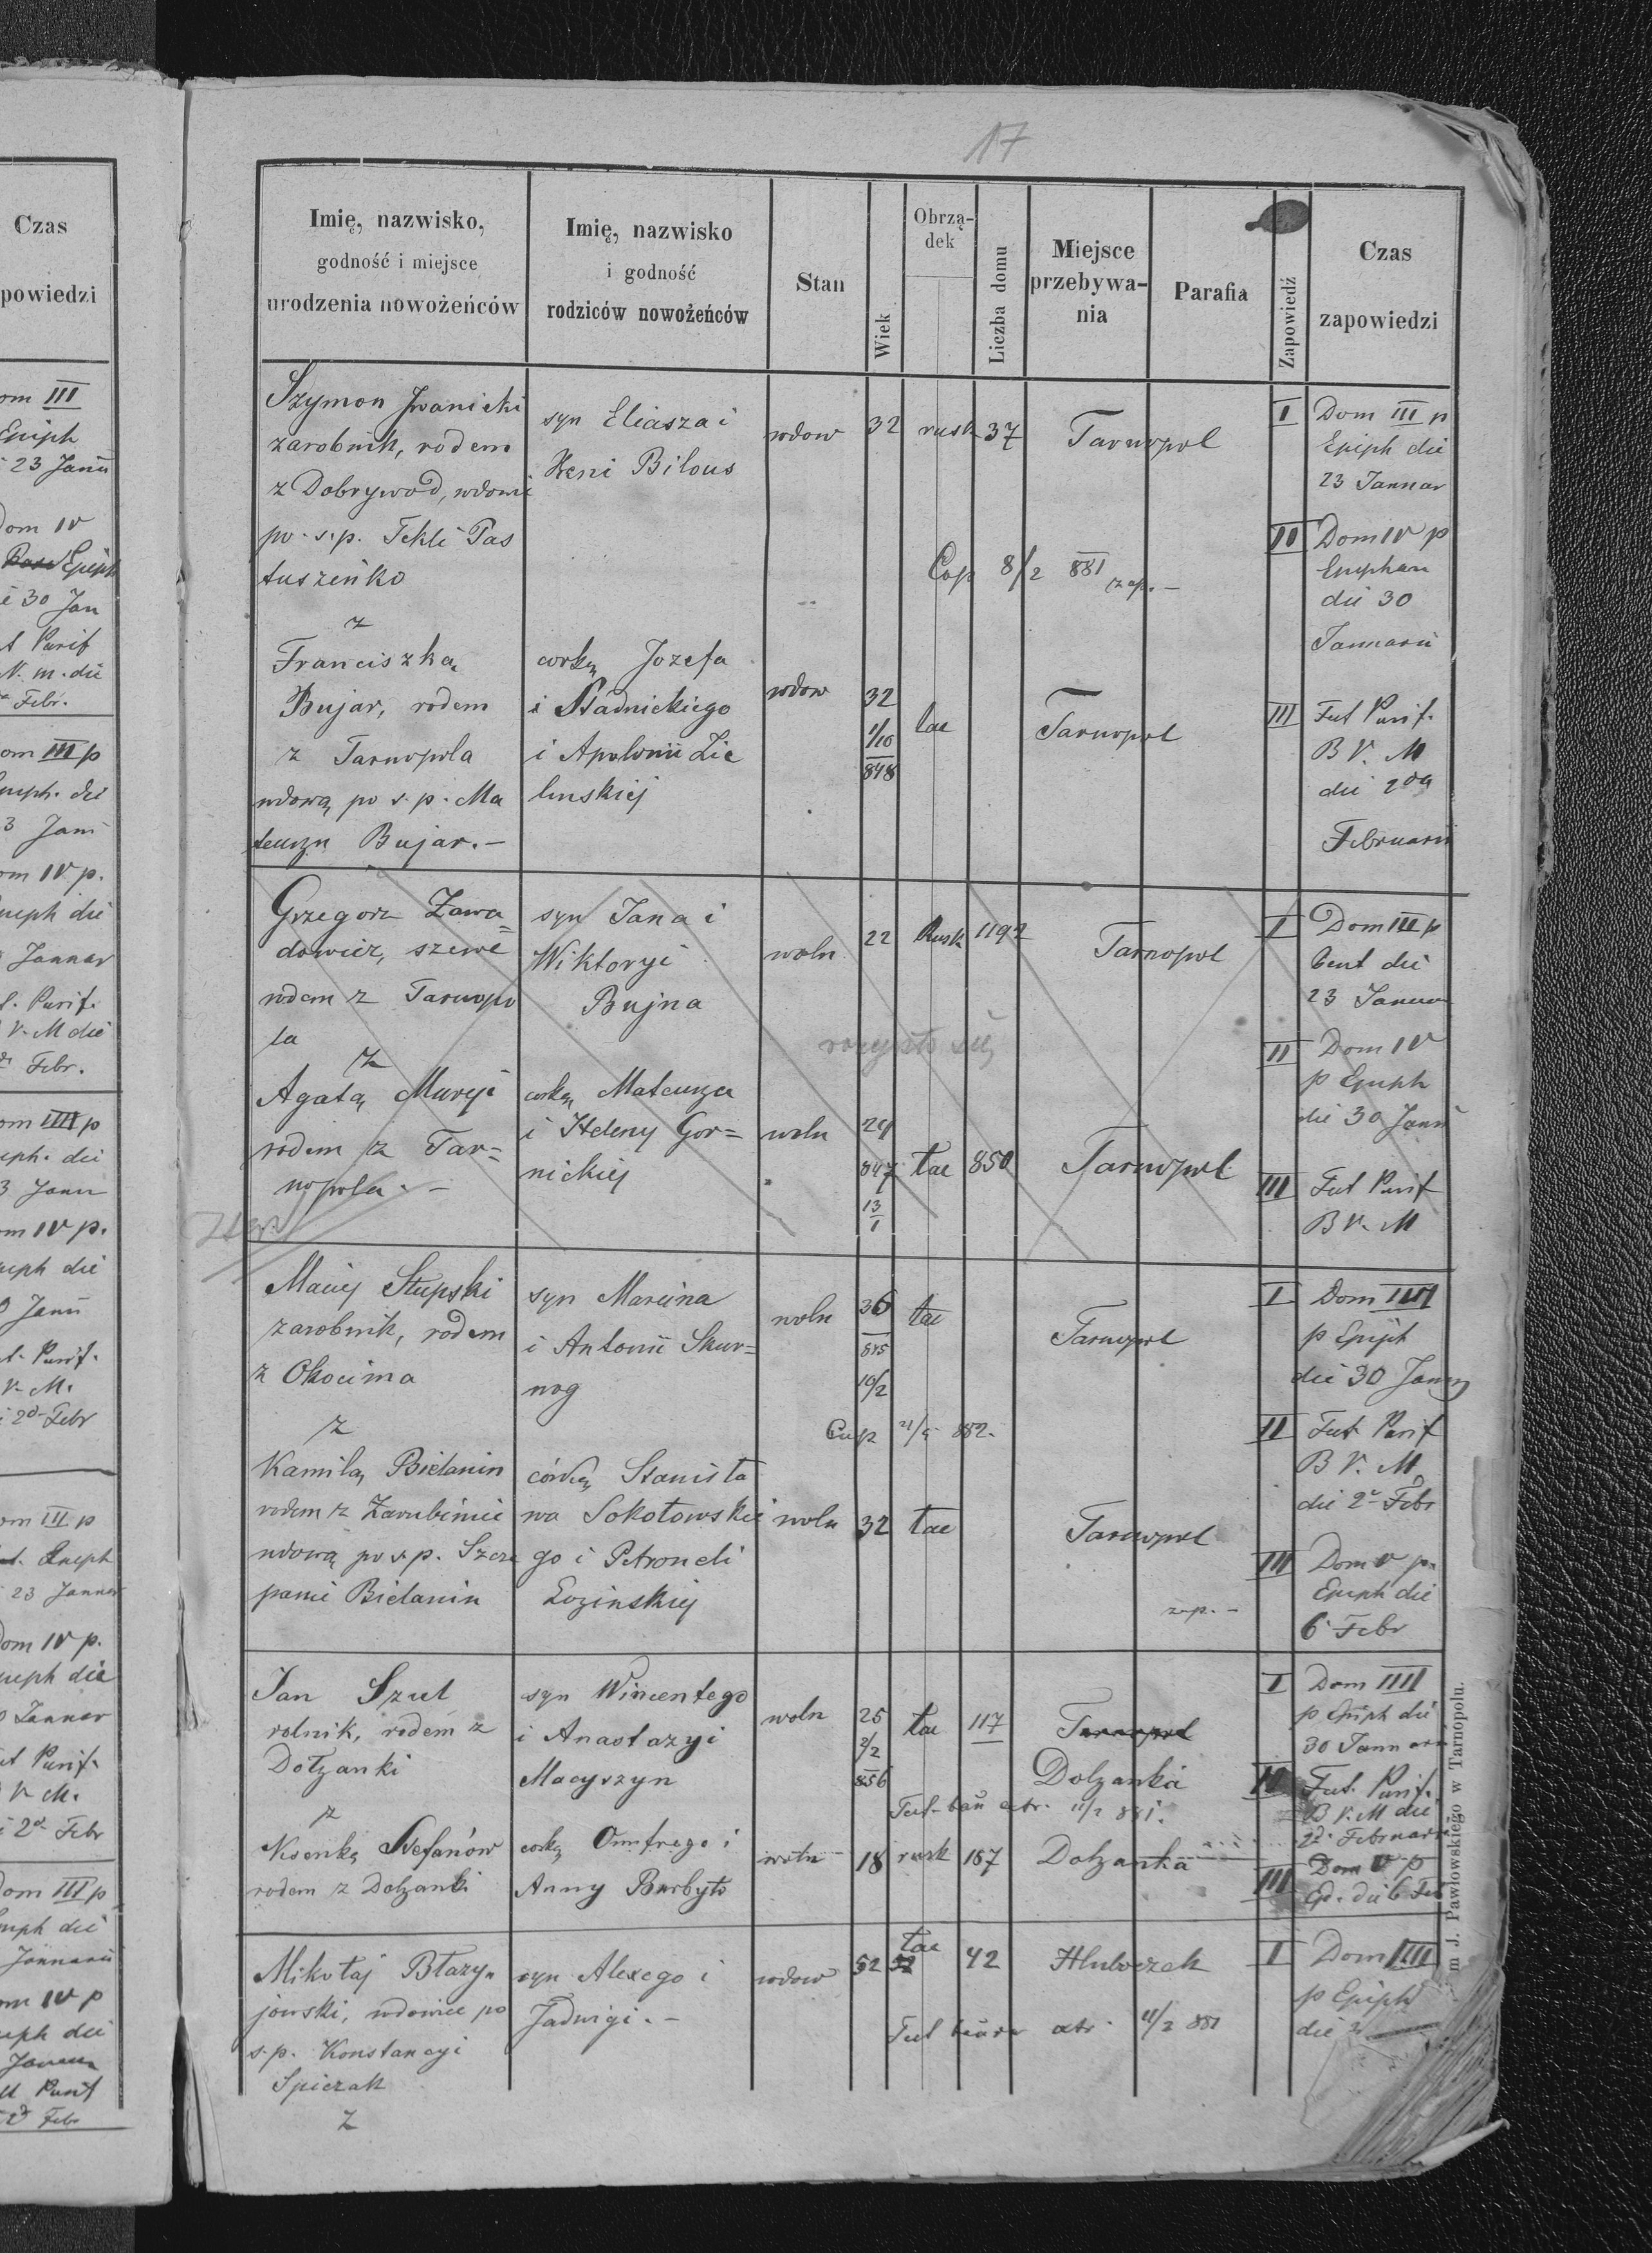 Czas
powiedzi
om III
Epiph
23 Januii
Dom IV
Epiph
30 Jan
t Purif
V. M. die
Febr.
om III p
Epiph. die
3 Jani
om IV p.
Epiph die
Januar
t. Purif.
V. M die
Febr.
om IIII p
Epiph. die
3 Janu
om IV p.
Epiph die
Janii
t. Purif.
V. M.
i 2d Febr
om III p
Epiph
23 Januar
Dom IV p.
Epiph die
Januar
ut Purif.
V M.
i 2d Febr
Dom III p
Epiph die
Januarii
om IV p
Epiph die
ut Purif
2d Febr
17
Imię, nazwisko,
godność i miejsce
urodzenia nowożeńców
Imię, nazwisko
i godność
rodziców nowożeńców
Stan
Wiek
Obrzą-
dek
Liczba domu
Miejsce
przebywa-
nia
Parafia
Zapowiedź
Czas
zapowiedzi
Szymon Iwanicki
zarobnik, rodem
z Dobrywod, wdowi
po s.p. Tekli Pas
tuszeńko
z
Franciszką
Bujar, rodem
z Tarnopola
wdową po s.p. Ma
teuszu Bujar.—
syn Eliasza i
Xeni Bilous
corką Jozefa
i Stadnickiego
i Apolonii Zie
linskiej
wdow
32
rusk
37
Tarnopol
Cop 8/2 881
zap.—
wdow
32
1/10
848
lac
Tarnopol
I Dom III p
Epiph die
23 Januar
II Dom IV p
Epiphan
die 30
Januarii
III Fest Purif.
B V. M
die 2da
Februarii
Grzegorz Zawa=
dowicz, szewc
rodem z Tarnopo
la
z
Agatą Muryi
rodem z Tar=
nopola.—
syn Jana i
Wiktoryi
Bujna
corką Mateusza
i Heleny Gor=
nickiej
woln
22
Rusk
1192
Tarnopol
się
woln
24
847
13
1
lac
850
Tarnopol
I Dom III p
die
23 Januar
II Dom IV
p Epiph
die 30 Janii
III Fest Purif
B V. M
Maciej Słupski
zarobnik, rodem
z Okocima
z
Kamilą Bielanin
rodem z Zarubiniec
wdową po s.p. Szcze
panie Bielanin
syn Marcina
i Antonii Skur=
nog
córką Stanisła
wa Sokołowskie
go i Petroneli
Łozinskiej
woln
36
845
10/2
lac
Tarnopol
Cop 21/5 882.
woln
32
lac
Tarnopol
zap.—
I Dom IIII
p Epiph
die 30 Janua
II Fest Purif
B V. M
die 2a Febr
III Dom V p.
Epiph die
6 Febr
Jan Szul
rolnik, rodem z
Dołzanki
z
Ksenką Stefanów
rodem z Dolzanki
syn Wincentego
i Anastazyi
Macyszyn
corką Onufrego i
Anny Barbyto
woln
25
2/2
856
lac
117
Tarnopol
Dolzanka
11/2 881.
woln
18
rusk
167
Dolzanka
I Dom IIII
p Epiph die
30 Januarii
II Fest. Purif.
B V. M die
2d. Februarii
III Dom V p
Ep. die 6 Feb
Mikołaj Błazy=
jowski, wdowiec po
s.p. Konstancyi
Spiczak
z
syn Alexego i
Jadwigi.—
wdow
52
lac
42
Hluboczek
11/2 881
I Dom IIII
p Epiph
die
m J. Pawłowskiego w Tarnopolu.